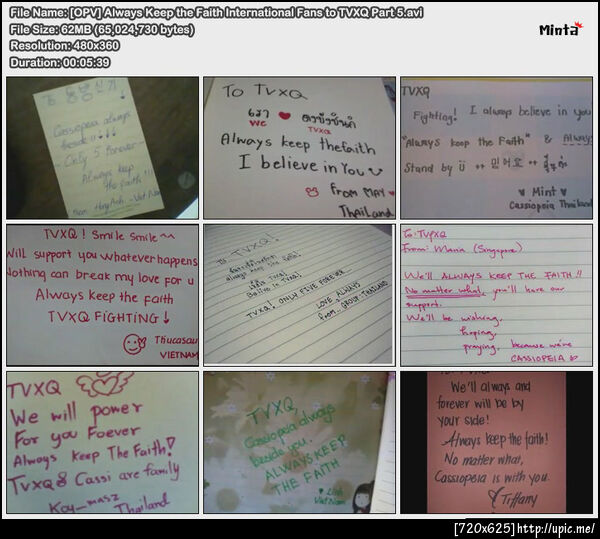 File Name: [OPV] Always Keep the Faith International Fans to TVXQ Part 5.avi
File Size: 62MB (65,024,730 bytes)
Resolution: 480x360
Duration: 00:05:39
Minta
To 동방신기
Cassiopeia always
beside !!
- Only 5 Forever -
Always keep
the faith !!!
- Viet Nam
To TVXQ
เรา ❤
We TVXQ
Always keep the faith
I believe in You
From MAY ❤
Thailand
TVXQ
Fighting! I always believe in you
"Always keep the Faith" & Always
Stand by ü ** 믿어요 **
♥ Mint ♥
Cassiopeia Thailand
TVXQ ! Smile Smile ~~
Will support you whatever happens
Nothing can break my love for u
Always keep the faith
TVXQ FIGHTING ↓
Thucasau
VIETNAM
To TVXQ!
Always keep the faith!
Believe in TVXQ!
TVXQ! ONLY FIVE FOREVER
LOVE ALWAYS
from.. GROUP THAILAND
To: TVXQ
From: Maria (Singapore)
We'll ALWAYS KEEP THE FAITH !!
No matter what, you'll have our
support.
We'll be wishing,
hoping,
praying, because we're
CASSIOPEIA
TVXQ
We will power
For you Foever
Always Keep The Faith!
TVXQ & Cassi are family
Kay_masz
Thailand
TVXQ
Cassiopeia always
beside you.
ALWAYS KEEP
THE FAITH
♥ Linh
Viet Nam
We'll always and
forever will be by
your side!
Always keep the faith!
No matter what,
Cassiopeia is with you.
♡ Tiffany
[720x625]http://upic.me/